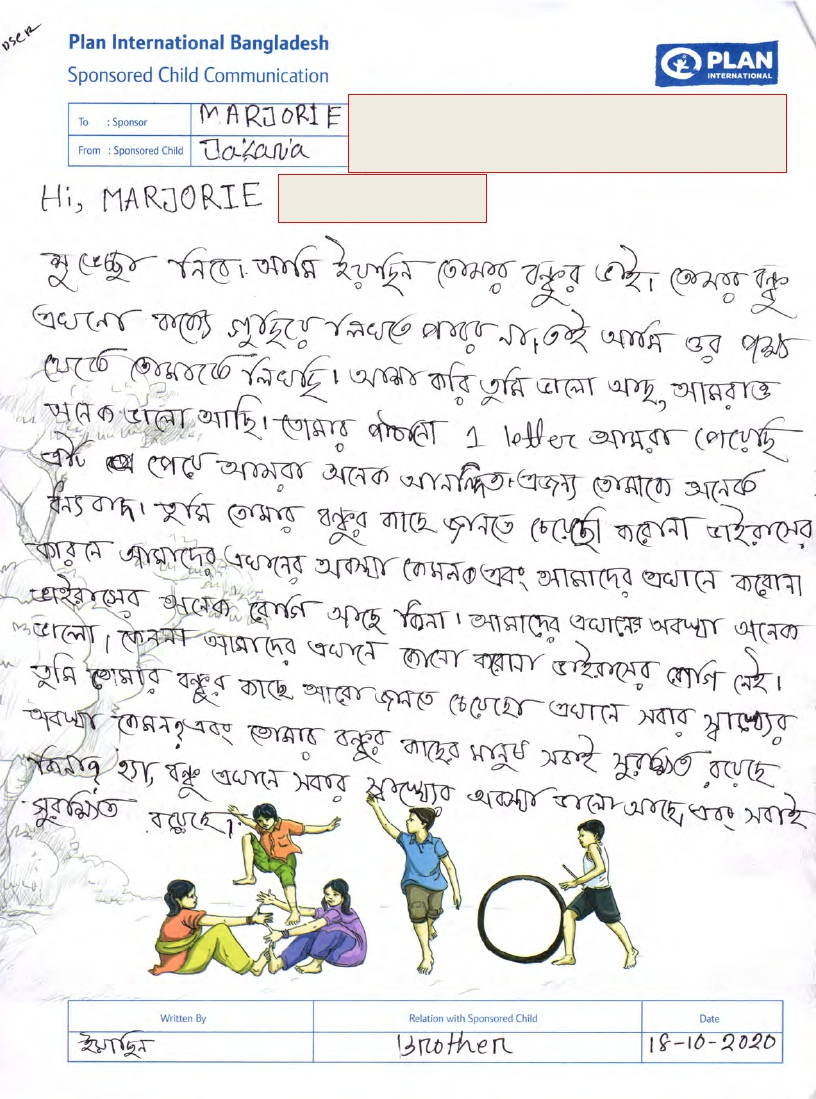 DSCR
Plan International Bangladesh
Sponsored Child Communication
PLAN
INTERNATIONAL
To : Sponsor MARJORIE
From : Sponsored Child
Hi, MARJORIE
শুভেচ্ছা নিবে। আমি ইয়াছিন তোমার বন্ধুর ভাই। তোমার বন্ধু
এখনো বাক্যে গুছিয়ে লিখতে পারে না, তাই আমি ওর পক্ষ
থেকে তোমাকে লিখছি। আশা করি তুমি ভালো আছ, আমরাও
অনেক ভালো আছি। তোমার পাঠানো 1 letter আমরা পেয়েছি
এটা পেয়ে আমরা অনেক আনন্দিত। এজন্য তোমাকে অনেক
ধন্যবাদ। তুমি তোমার বন্ধুর কাছে জানতে চেয়েছো করোনা ভাইরাসের
কারনে আমাদের এখানের অবস্থা কেমন এবং আমাদের এখানে করোনা
ভাইরাসের অনেক রোগি আছে কিনা। আমাদের এখানের অবস্থা অনেক
ভালো। কেননা আমাদের এখানে কোনো করোনা ভাইরাসের রোগি নেই।
তুমি তোমার বন্ধুর কাছে আরো জানতে চেয়েছো এখানে সবার স্বাস্থ্যের
অবস্থা কেমন? এবং তোমার বন্ধুর কাছের মানুষ সবাই সুরক্ষিত রয়েছে
কিনা? হ্যা, বন্ধু এখানে সবার স্বাস্থ্যের অবস্থা ভালো আছে, এবং সবাই
সুরক্ষিত রয়েছে।
Written By Relation with Sponsored Child Date
ইয়াছিন Brother 18-10-2020